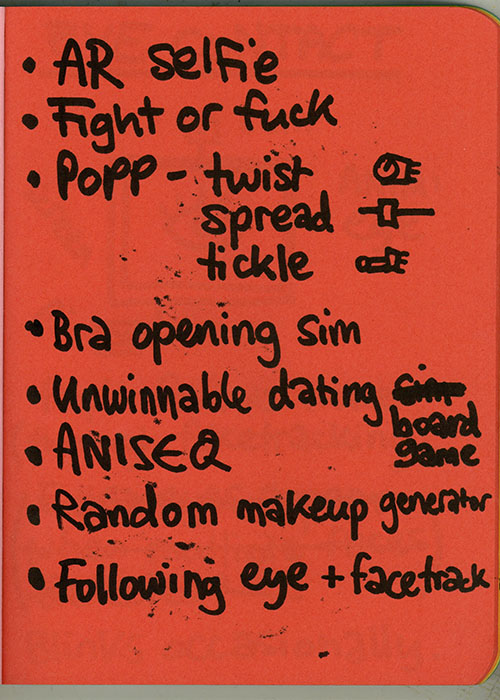 • AR selfie
• Fight or fuck
• POPP - twist
spread
tickle
• Bra opening sim
• Unwinnable dating sim
board
game
• ANISEQ
• Random makeup generator
• Following eye + facetrack